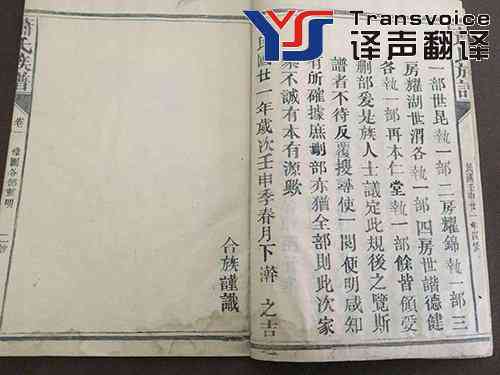 YS
Transvoice
译声翻译
族譜
一部世昆執一部二房耀錦執一部三
房耀湖世渭各執一部四房世諧德健
各執一部再本仁堂執一部餘皆領受
刪部爰是族人士議定此規後之覽斯
譜者不待反覆搜尋使一閱便明咸知
有所確據庶刪部亦猶全部則此次家
乘不誠有本有源歟
民國廿一年歲次壬申季春月下澣 之吉
合族謹識
氏族譜
卷一